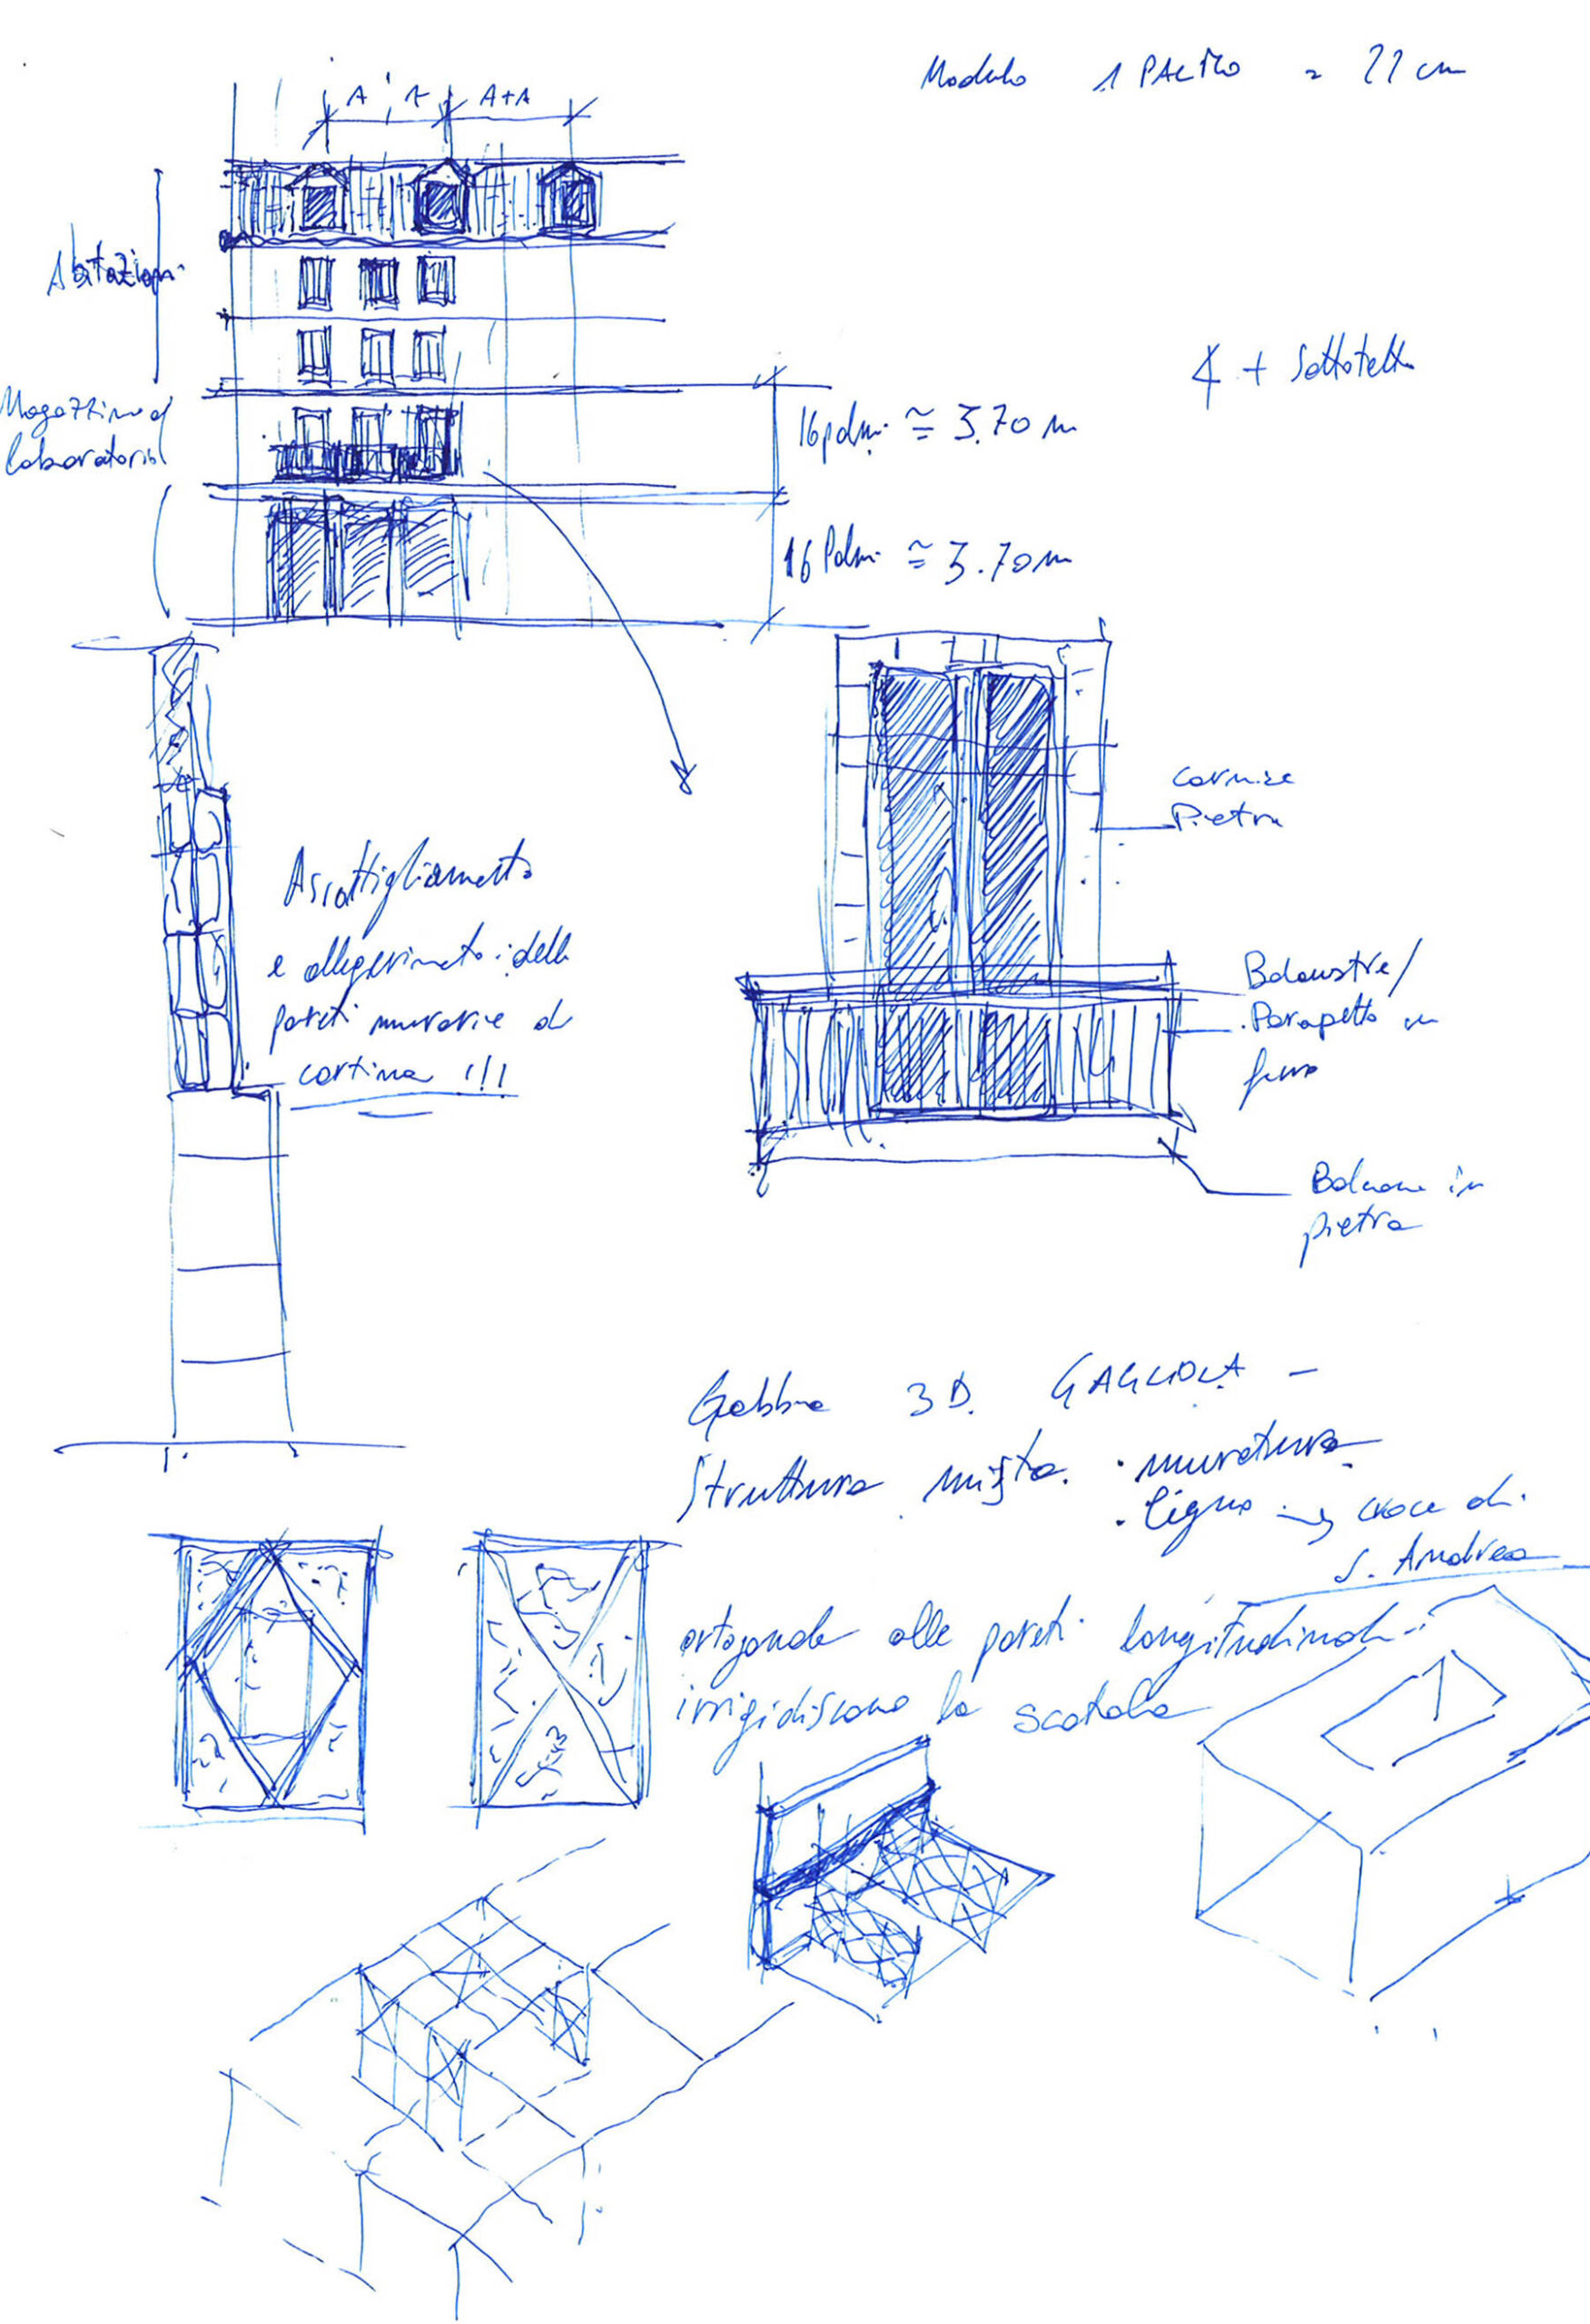 Modulo 1 PALMO = 22 cm
A A A+A
Abitazioni
4 + Sottotetto
Magazzino d
laboratorio
16 palmi ≅ 3.70 m
16 Palmi ≅ 3.70 m
Cornice
Pietra
Assottigliamento
e allegerimento delle
pareti murarie di
cortina !!!
Balaustre/
Parapetto in
ferro
Balcone in
pietra
Gabbia 3D GAGLIOLA -
Struttura mista . muratura
. ligno → croce di
S. Andrea
ortogonale alle pareti longitudinali
irrigidiscono la scatola